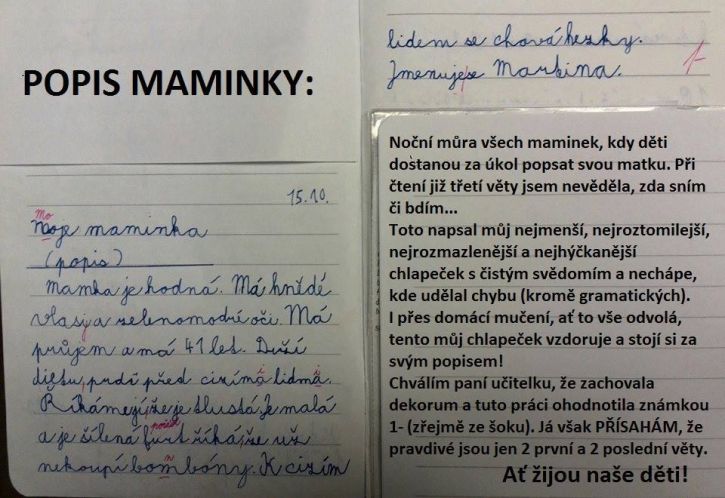 POPIS MAMINKY:
15.10.
Mo
Moje maminka
(popis)
Mamka je hodná. Má hnědé
vlasy a zelenomodré oči. Má
průjem a má 41 let. Drží
dietu, prdí před cizíma lidma.
Říkáme jí, že je tlustá. Je malá
a je šílená furt říká, že už
nekoupí bombóny. K cizím
lidem se chová hezky.
Jmenuje se Martina.
1-
Noční můra všech maminek, kdy děti
dostanou za úkol popsat svou matku. Při
čtení již třetí věty jsem nevěděla, zda sním
či bdím...
Toto napsal můj nejmenší, nejroztomilejší,
nejrozmazlenější a nejhýčkanější
chlapeček s čistým svědomím a nechápe,
kde udělal chybu (kromě gramatických).
I přes domácí mučení, ať to vše odvolá,
tento můj chlapeček vzdoruje a stojí si za
svým popisem!
Chválím paní učitelku, že zachovala
dekorum a tuto práci ohodnotila známkou
1- (zřejmě ze šoku). Já však PŘÍSAHÁM, že
pravdivé jsou jen 2 první a 2 poslední věty.
Ať žijou naše děti!